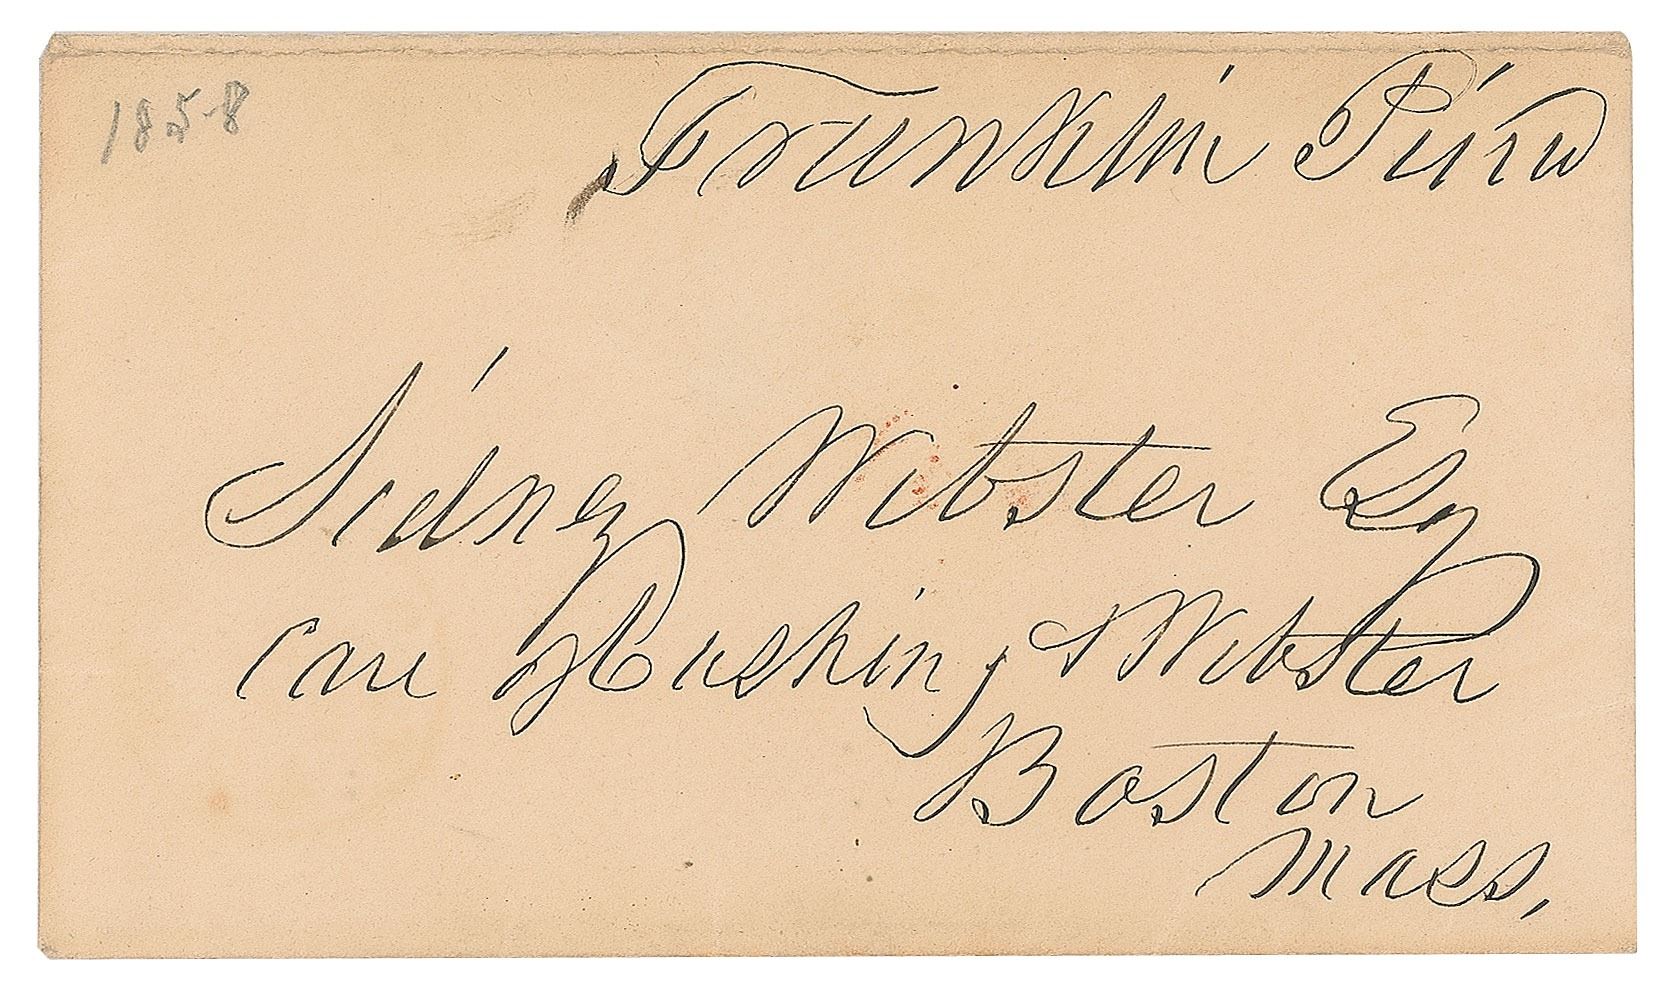 1858
Franklin Pierce
Sidney Webster Esq
care of Cushing & Webster
Boston
Mass,